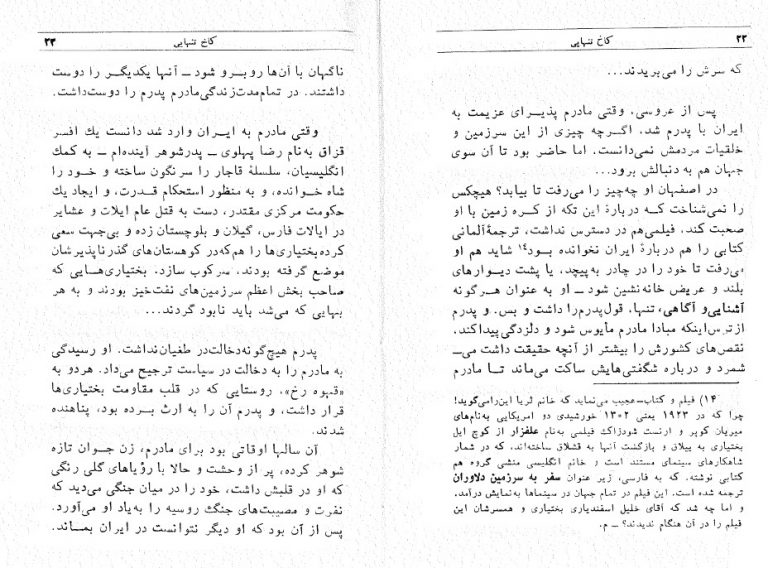 ۲۲
کاخ تنهایی
که سرش را می‌بریدند...
پس از عروسی، وقتی مادرم پذیرای عزیمت به
ایران با پدرم شد، اگرچه چیزی از این سرزمین و
خلقیات مردمش نمی‌دانست. اما حاضر بود تا آن سوی
جهان هم به دنبالش برود...
در اصفهان او چه‌چیز را می‌رفت تا بیابد؟ هیچکس
را نمی‌شناخت که دربارهٔ این تکه از کره زمین با او
صحبت کند، فیلمی‌هم در دسترس نداشت، ترجمهٔ آلمانی
کتابی را هم دربارهٔ ایران نخوانده بود۱۴ شاید هم او
می‌رفت تا خود را در چادر به‌پیچد، یا پشت دیوارهای
بلند و عریض خانه‌نشین شود ــ او به عنوان هرگونه
آشنایی‌و آگاهی، تنها، قول‌پدرم‌را داشت و بس. و پدرم
ازترس‌اینکه مبادا مادرم مأیوس شود و دلزدگی‌پیداکند،
نقص‌های کشورش را بیشتر از آنچه حقیقت داشت می‌ــ
شمرد و درباره شگفتی‌هایش ساکت می‌ماند تا مادرم
۱۴) فیلم و کتاب‌ــ‌عجیب می‌نماید که خانم ثریا این‌رامی‌گوید!
چرا که در ۱۹۲۳ یعنی ۱۳۰۲ خورشیدی دو امریکایی به‌نام‌های
میریان کوپر و ارنست شودزاک فیلمی به‌نام علفزار از کوچ ایل
بختیاری به ییلاق و بازگشت آنها به قشلاق ساخته‌اند، که در شمار
شاهکارهای سینمای مستند است و خانم انگلیسی منشی گروه هم
کتابی نوشته، که به فارسی، زیر عنوان سفر به سرزمین دلاوران
ترجمه شده است. این فیلم در تمام جهان در سینماها به‌نمایش درآمد،
و اما چه شد که آقای خلیل اسفندیاری بختیاری و همسرشان این
فیلم را در آن هنگام ندیدند؟ ــ م.
کاخ تنهایی
۲۳
ناگهان با آن‌ها روبرو شود ــ آنها یکدیگر را دوست
داشتند. در تمام‌مدت‌زندگی‌مادرم پدرم را دوست‌داشت.
وقتی مادرم به ایران وارد شد دانست یك افسر
قزاق به‌نام رضا پهلوی ــ پدرشوهر آینده‌ام ــ به کمك
انگلیسیان، سلسلهٔ قاجار را سرنگون ساخته و خود را
شاه خوانده، و به منظور استحکام قدرت، و ایجاد یك
حکومت مرکزی مقتدر، دست به قتل عام ایلات و عشایر
در ایالات فارس، گیلان و بلوچستان زده و بی‌جهت سعی
کرده‌بختیاری‌ها را هم‌که‌در کوهستان‌های گذرناپذیرشان
موضع گرفته بودند، سرکوب سازد. بختیاری‌هایی که
صاحب بخش اعظم سرزمین‌های نفت‌خیز بودند و به هر
بهایی که می‌شد باید نابود گردند...
پدرم هیچ‌گونه‌دخالت‌در طغیان‌نداشت. او رسیدگی
به مادرم را به دخالت در سیاست ترجیح می‌داد. هردو به
«قهوه رخ»، روستایی که در قلب مقاومت بختیاری‌ها
قرار داشت، و پدرم آن را به ارث برده بود، پناهنده
شدند.
آن سالها اوقاتی بود برای مادرم، زن جوان تازه
شوهر کرده، پر از وحشت و حالا با رؤیاهای گلی رنگی
که او در قلبش داشت، خود را در میان جنگی می‌دید که
نفرت و مصیبت‌های جنگ روسیه را به‌یاد او می‌آورد.
پس از آن بود که او دیگر نتوانست در ایران بماند.